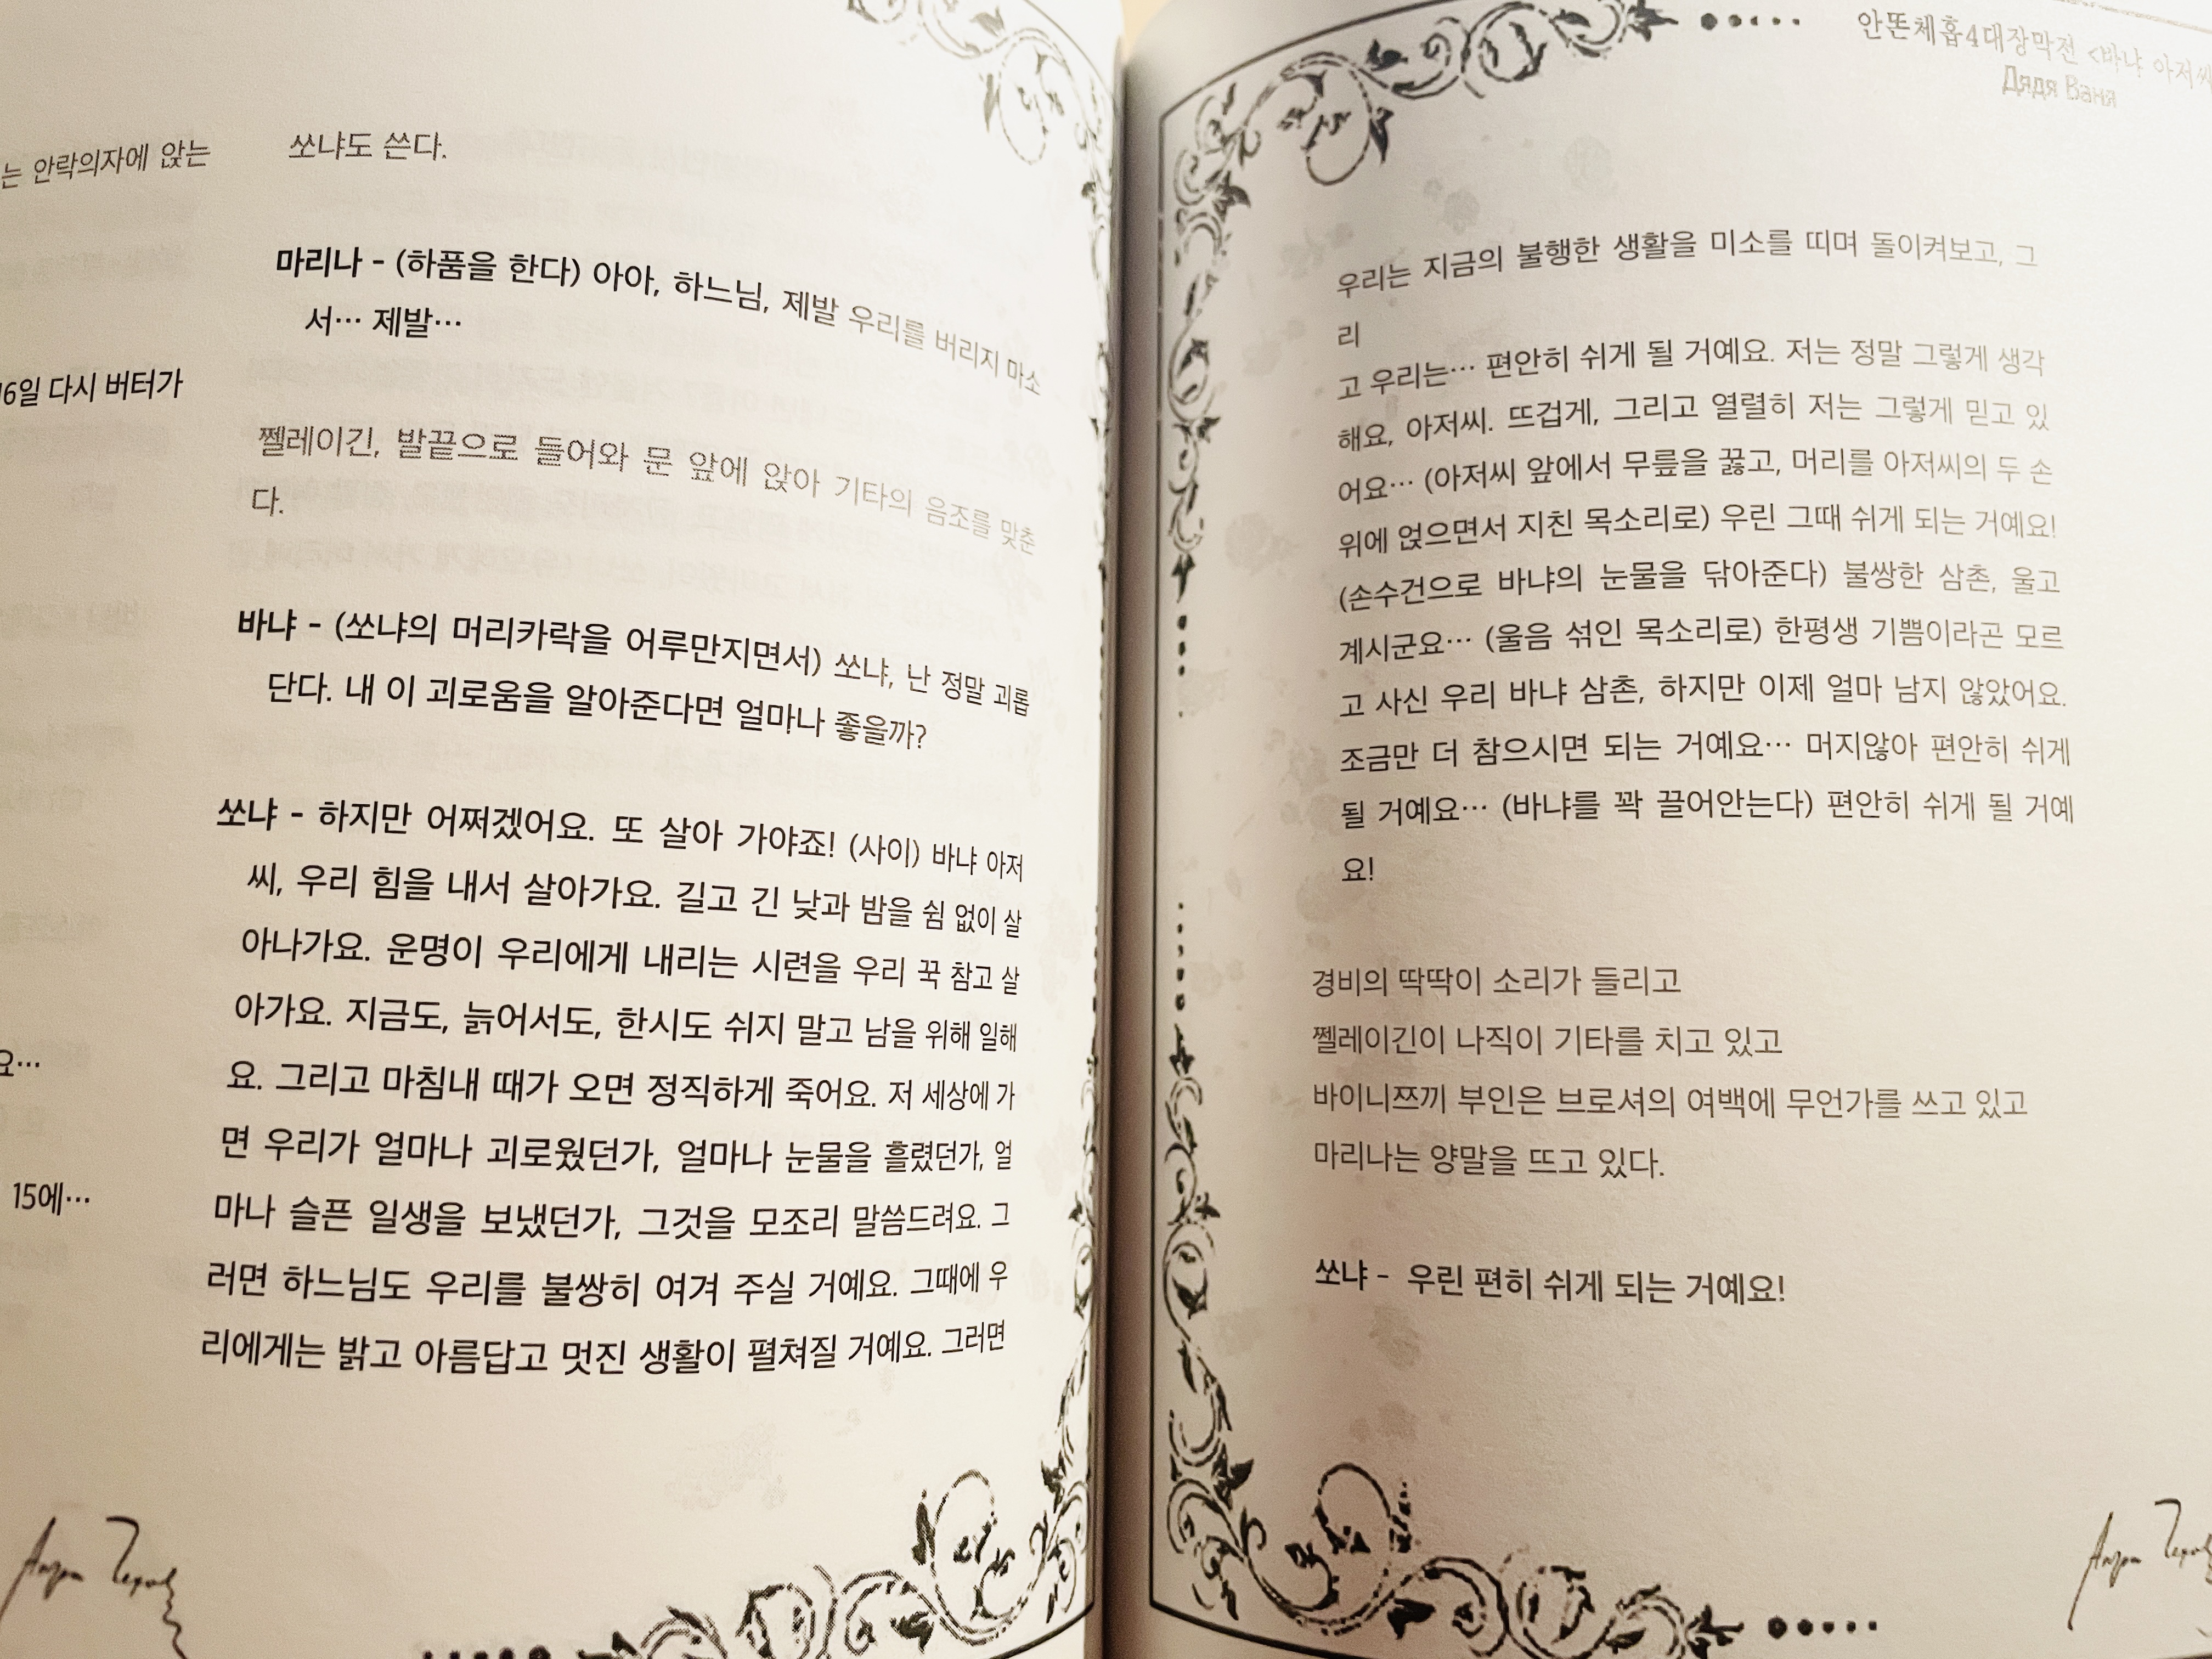 는 안락의자에 앉는
16일 다시 버터가
요…
15에…
쏘냐도 쓴다.
마리나 - (하품을 한다) 아아, 하느님, 제발 우리를 버리지 마소
서… 제발…
쩰레이긴, 발끝으로 들어와 문 앞에 앉아 기타의 음조를 맞춘
다.
바냐 - (쏘냐의 머리카락을 어루만지면서) 쏘냐, 난 정말 괴롭
단다. 내 이 괴로움을 알아준다면 얼마나 좋을까?
쏘냐 - 하지만 어쩌겠어요. 또 살아 가야죠! (사이) 바냐 아저
씨, 우리 힘을 내서 살아가요. 길고 긴 낮과 밤을 쉼 없이 살
아나가요. 운명이 우리에게 내리는 시련을 우리 꾹 참고 살
아가요. 지금도, 늙어서도, 한시도 쉬지 말고 남을 위해 일해
요. 그리고 마침내 때가 오면 정직하게 죽어요. 저 세상에 가
면 우리가 얼마나 괴로웠던가, 얼마나 눈물을 흘렸던가, 얼
마나 슬픈 일생을 보냈던가, 그것을 모조리 말씀드려요. 그
러면 하느님도 우리를 불쌍히 여겨 주실 거예요. 그때에 우
리에게는 밝고 아름답고 멋진 생활이 펼쳐질 거예요. 그러면
안똔체홉4대장막전 <바냐 아저씨
Дядя Ваня
우리는 지금의 불행한 생활을 미소를 띠며 돌이켜보고, 그
리
고 우리는… 편안히 쉬게 될 거예요. 저는 정말 그렇게 생각
해요, 아저씨. 뜨겁게, 그리고 열렬히 저는 그렇게 믿고 있
어요… (아저씨 앞에서 무릎을 꿇고, 머리를 아저씨의 두 손
위에 얹으면서 지친 목소리로) 우린 그때 쉬게 되는 거예요!
(손수건으로 바냐의 눈물을 닦아준다) 불쌍한 삼촌, 울고
계시군요… (울음 섞인 목소리로) 한평생 기쁨이라곤 모르
고 사신 우리 바냐 삼촌, 하지만 이제 얼마 남지 않았어요.
조금만 더 참으시면 되는 거예요… 머지않아 편안히 쉬게
될 거예요… (바냐를 꽉 끌어안는다) 편안히 쉬게 될 거예
요!
경비의 딱딱이 소리가 들리고
쩰레이긴이 나직이 기타를 치고 있고
바이니쯔끼 부인은 브로셔의 여백에 무언가를 쓰고 있고
마리나는 양말을 뜨고 있다.
쏘냐 - 우린 편히 쉬게 되는 거예요!